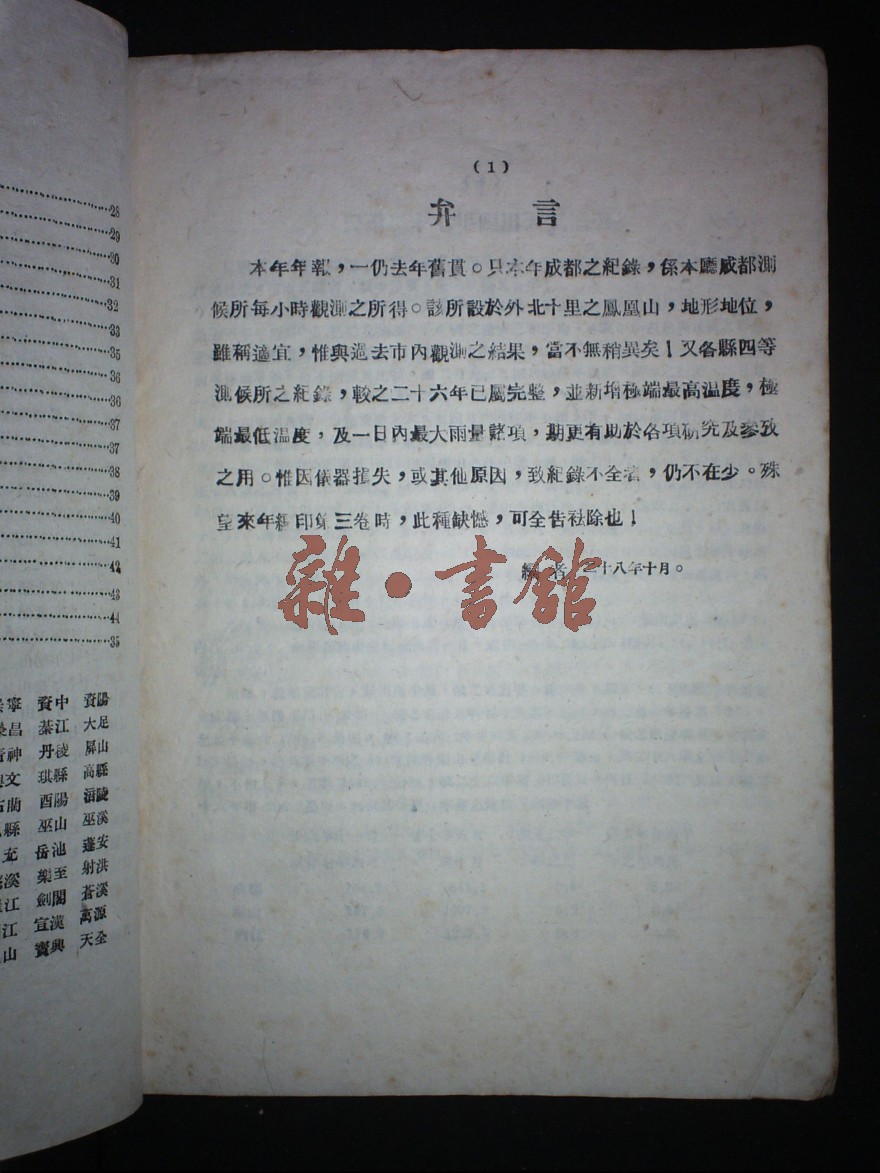 28
29
30
31
32
33
35
36
36
37
37
38
39
40
41
42
43
44
35
寧 資中 資陽
昌 綦江 大足
神 丹淩 屏山
文 珙縣 高縣
藺 酉陽 涪陵
縣 巫山 巫溪
充 岳池 蓬安
溪 樂至 射洪
江 劍閣 蒼溪
江 宣漢 萬源
山 寶興 天全
(1)
弁言
本年年報,一仍去年舊貫。只本年成都之紀錄,係本廳成都測
候所每小時觀測之所得。該所設於外北十里之鳳凰山,地形地位,
雖稱適宜,惟與過去市內觀測之結果,當不無稍異矣!又各縣四等
測候所之紀錄,較之二十六年已屬完整,並新增極端最高温度,極
端最低温度,及一日內最大雨量諸項,期更有助於各項研究及參攷
之用。惟因儀器損失,或其他原因,致紀錄不全者,仍不在少。殊
望來年編印第三卷時,此種缺憾,可全告祛除也!
編者 二十八年十月。
雜·書館